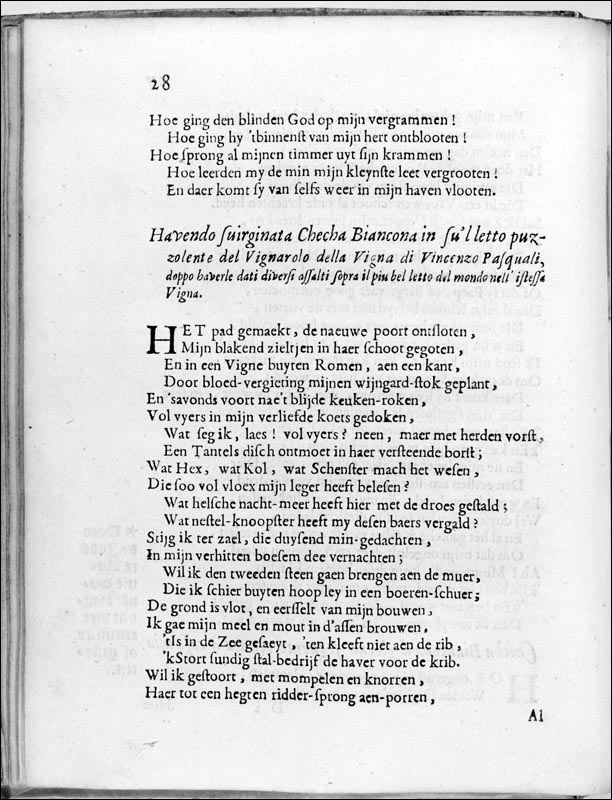 28
Hoe ging den blinden God op mijn vergrammen !
Hoe ging hy 'tbinnenst van mijn hert ontblooten !
Hoe sprong al mijnen timmer uyt sijn krammen !
Hoe leerden my de min mijn kleynste leet vergrooten !
En daer komt sy van selfs weer in mijn haven vlooten.
Havendo suirginata Checha Biancona in su'l letto puz-
zolente del Vignarolo della Vigna di Vincenzo Pasquali,
doppo haverle dati diversi assalti sopra il piu bel letto del mondo nell' istessa
Vigna.
HET pad gemaekt, de naeuwe poort ontsloten,
Mijn blakend zieltjen in haer schoot gegoten,
En in een Vigne buyten Romen, aen een kant,
Door bloed-vergieting mijnen wijngard-stok geplant,
En 'savonds voort nae't blijde keuken-roken,
Vol vyers in mijn verliefde koets gedoken,
Wat seg ik, laes ! vol vyers ? neen, maer met herden vorst,
Een Tantels disch ontmoet in haer versteende borst;
Wat Hex, wat Kol, wat Schenster mach het wesen,
Die soo vol vloex mijn leger heeft belesen ?
Wat helsche nacht-meer heeft hier met de droes gestald;
Wat nestel-knoopster heeft my desen baers vergald ?
Stijg ik ter zael, die duysend min-gedachten,
In mijn verhitten boesem dee vernachten;
Wil ik den tweedden steen gaen brengen aen de muer,
Die ik schier buyten hoop ley in een boeren-schuer;
De grond is vlot, en eersselt van mijn bouwen,
Ik gae mijn meel en mout in d'assen brouwen,
'tIs in de Zee gesaeyt, 'ten kleeft niet aen de rib,
'kStort sundig stal-bedrijf de haver voor de krib.
Wil ik gestoort, met mompelen en knorren,
Haer tot een hegten ridder-sprong aen-porren,
Al